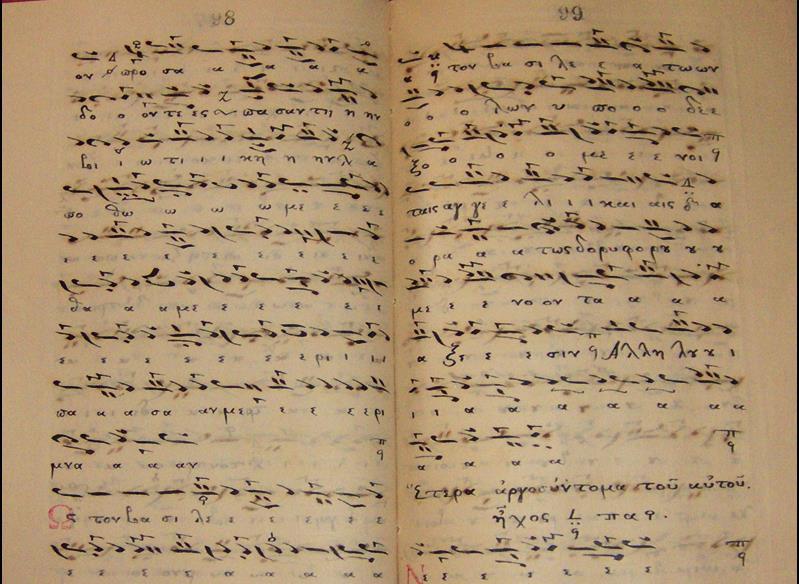 98
ον προ σα α α α α
δο ο ον τε ες πα σαν τη η ην
βι ι ω τι ι ι κη η ην λ α
πο θω ω ω ω με ε ε ε
ε ε ε ε ε ε ε ε
θα α α με ε ε ε ε ι
ε ε ε ε ε ε ε ρι ι ι ι
πα κ α σα αν με ε ε ε ε ρι
μνα α α αν
Ως τον βα σι λε ε ε ε ε ε ε
ε ε ε ε α α α α α
99
α τον βα σι λε ε α των ων
ο ο ο λων υ πο ο ο δε ε
ξο ο ο ο ο με ε ε νοι
ταις αγ γε ε λι ι ι και αις α
ο ρα α α τως δο ρυ φο ρου ου ου
με ε ε νο ον τα α α α
α ξε ε ε σιν Αλλη λου ου ι
ι ι α α α α α α α
α α α α
Ἕτερα ἀργοσύντομα τοῦ αὐτοῦ.
ἦχος πα
Ν ε ε ε ε ε ε ε